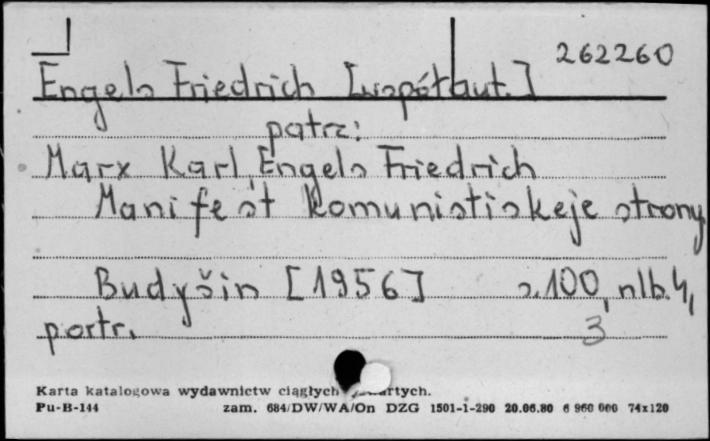 262260
Engels Friedrich [współaut.]
patrz:
Marx Karl, Engels Friedrich
Manifest komunistiskeje strony
Budyšin [1956] s. 100, nlb. 4,
portr. 3
Karta katalogowa wydawnictw ciągłych
Pu-B-144 zam. 684/DW/WA/On DZG 1501-1-290 20.06.80 6 960 000 74x120